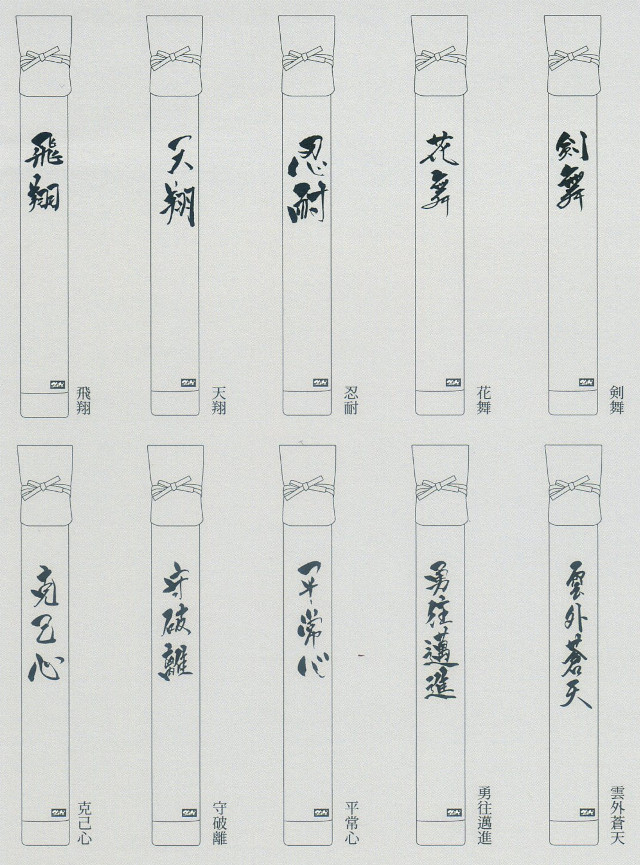 剣舞
剣舞
花舞
花舞
忍耐
忍耐
天翔
天翔
飛翔
飛翔
雲外蒼天
雲外蒼天
勇往邁進
勇往邁進
平常心
平常心
守破離
守破離
克己心
克己心